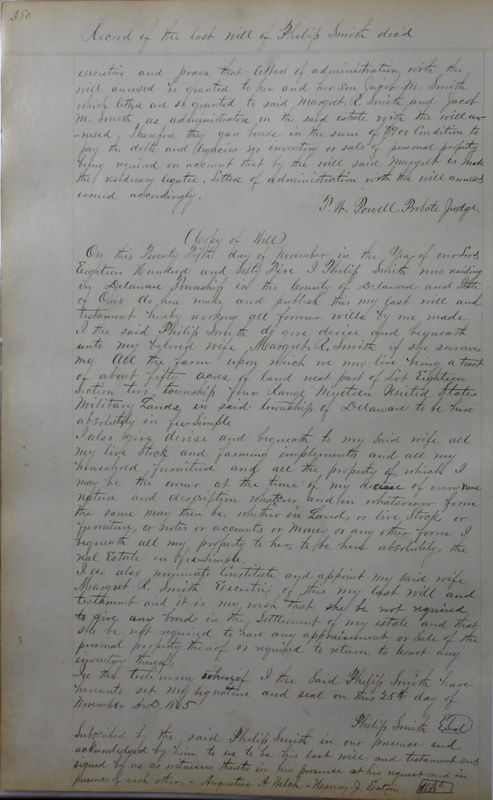 350
Record of the last will of Philip Smith dec'd
executrix and prays that letters of administration with the
will annexed be granted to her and her son Jacob M. Smith
which letters are so granted to said Margret R. Smith and Jacob
M. Smith as administrators in the said estate with the will an-
nexed, Therefore they gave bonds in the sum of Condition to
pay the debts and legacies no inventory or sale of personal property
being required on account that by the will said Margret is made
the residuary legatee. Letters of administration with the will annexed
issued accordingly.
T. W. Powell Probate Judge
(Copy of Will)
On this Twenty Fifth day of November in the Year of our Lord
Eighteen Hundred and Sixty Five I Philip Smith now residing
in Delaware Township in the County of Delaware and State
of Ohio do hue make and publish this my last will and
testament hereby revoking all former wills by me made
I the said Philip Smith do give devise and bequeath
unto my beloved wife, Margret R. Smith if she survives
me All the farm upon which we now live being a tract
of about fifty acres of land west part of Lot Eighteen
Section two township four Range Nineteen United States
Military Lands in said township of Delaware to be hers
absolutely in fee-Simple
I also give devise and bequeath to my said wife all
my live Stock and farming implements and all my
household furniture and all the property of which I
may be the owner at the time of my decease of every name
nature and description whatever and in whatsoever form
the same may then be, whether in Land, or live Stock or
furniture, or notes or accounts or money or any other form I
bequeath all my property to her, to be hers absolutely, the
real Estate in fee-Simple
I do also nominate Constitute and appoint my said wife
Margret R. Smith Executrix of this my last will and
testament and it is my wish that she be not required
to give any bond in the settlement of my estate and that
she be not required to have any appraisement or Sale of the
personal property thereof or required to return to court any
inventory thereof
In the testimony whereof I the Said Philip Smith have
hereunto set my signature and seal on this 25th day of
November A.D. 1865
Philip Smith Seal
Subscribed by the said Philip Smith in our presence and
acknowledged by him to us to be his last will and testament and
signed by us as witnesses thereto in his presence at his request and in
presence of each other. - Augustus A. Welch - Henry J. Eaton